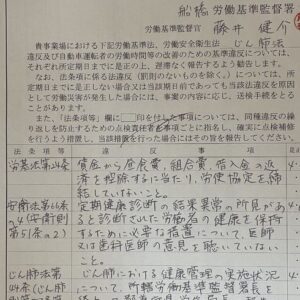 船橋労働基準監督署
労働基準監督官 藤井 健介
貴事業場における下記労働基準法、労働安全衛生法 じん肺法
違反及び自動車運転者の労働時間等の改善のための基準違反については、
それぞれ所定期日までに是正の上、遅滞なく報告するよう勧告します。
なお、法条項に係る法違反(罰則のないものを除く。)については、所
定期日までに是正しない場合又は当該期日前であっても当該法違反を原因
として労働災害が発生した場合には、事案の内容に応じ、送検手続をとる
ことがあります。
また、「法条項等」欄に□印を付した事項については、同種違反の繰
り返しを防止するための点検責任者を事項ごとに指名し、確実に点検補修
を行うよう措置し、当該措置を行った場合にはその旨を報告してください。
法条項等 違反事項
労基法第24条 賃金から昼食費、組合費、借入金の返
済を控除するに当たり、労使協定を締
結していないこと。
安衛法第66条 定期健康診断の結果異常の所見があ
の4(安衛則 ると診断された労働者の健康を保持
第51条の2) するために必要な措置について、医師
又は歯科医師の意見を聴いていな
いこと。
じん肺法第 じん肺に関する健康管理の実施状況
44条(じん肺 について、所轄労働基準監督署長を